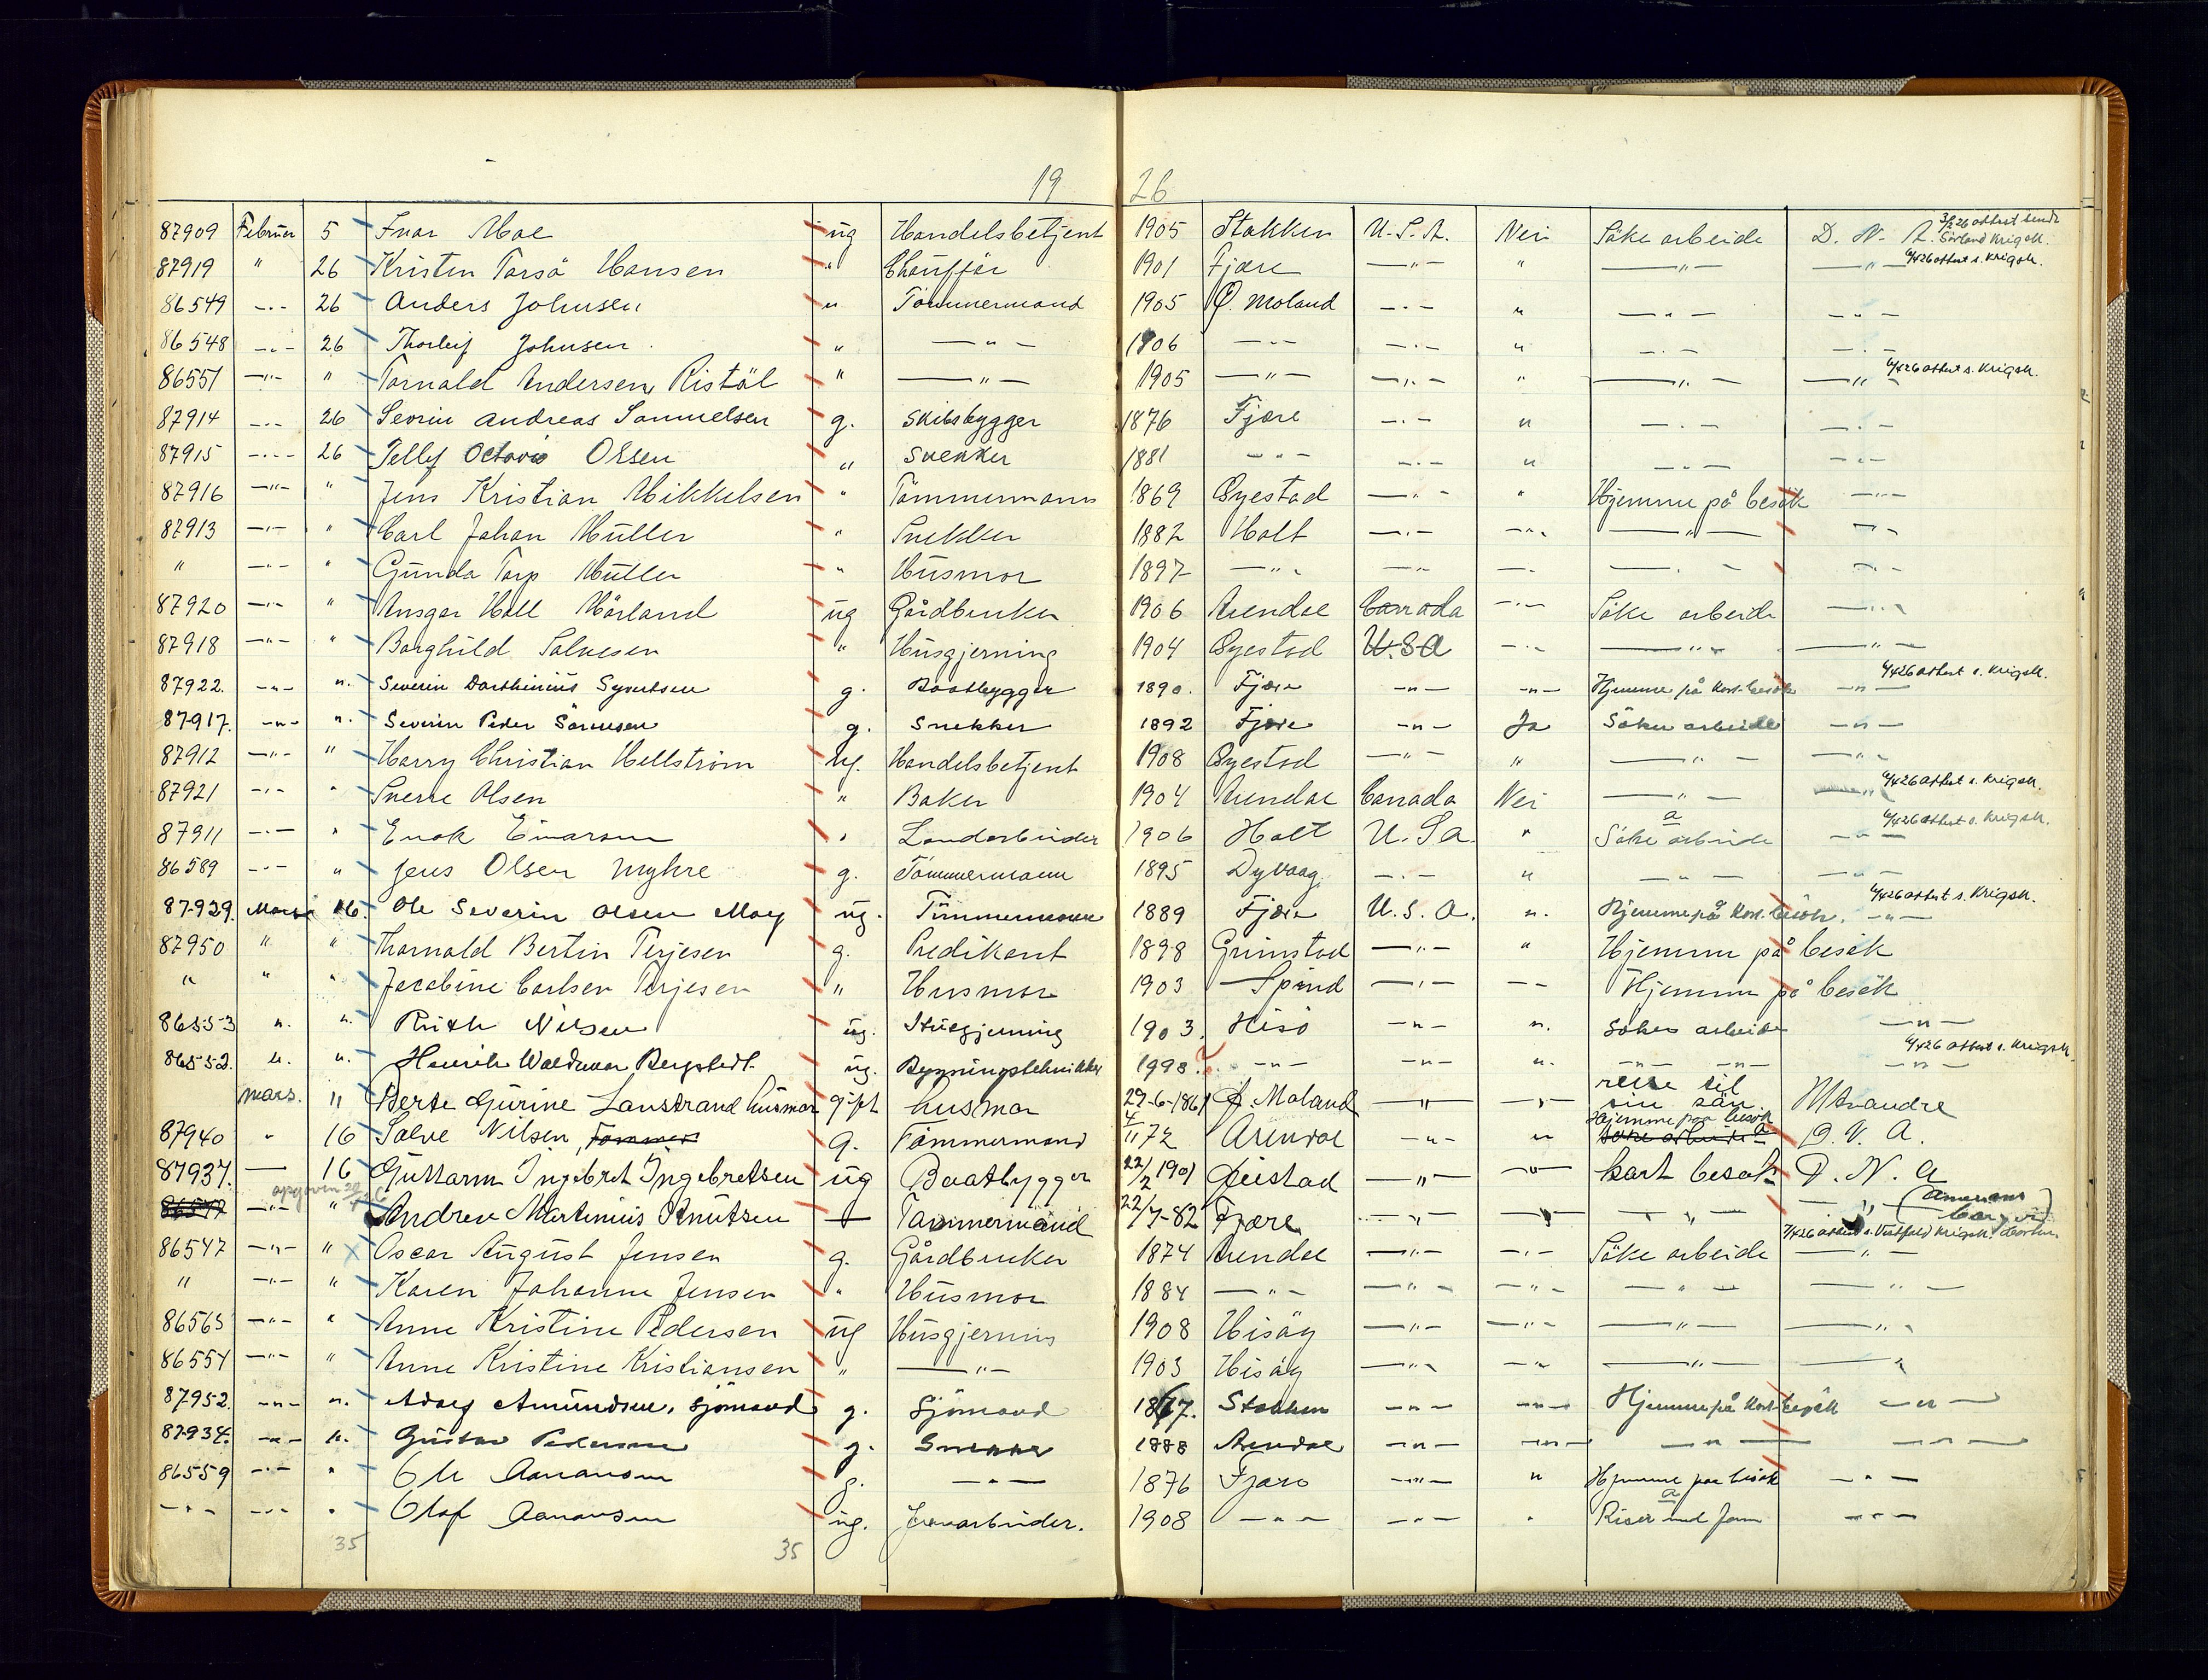 19 26
87909 Februar 5 Ivar Moe ug Handelsbetjent 1905 Stokken U.S.A. Nei Söke arbeide D. N. A. 3/2 26 attest sendt Sörland Krigsk.
87919 " 26 Kristen Tarsö Hansen " Chaufför 1901 Fjære —"— " —"— —"— 6/4 26 attest s. Krigsk.
86549 —"— 26 Anders Johnsen " Tömmermand 1905 Ö. Moland —"— " —"— —"—
86548 —"— 26 Thorleif Johnsen " —"— 1906 —"— —"— " —"— —"—
86551 —"— " Tornald Andersen Ristöl " —"— 1905 —"— —"— " —"— —"— 6/4 26 attest s. Krigsk.
87914 —"— 26 Severin Andreas Samuelsen g. Skibsbygger 1876 Fjære —"— " —"— —"—
87915 —"— 26 Tellef Octavio Olsen " Snekker 1881 —"— —"— " —"— —"—
87916 —"— " Jens Kristian Mikkelsen " Tömmermann 1869 Öyestad —"— " Hjemme på besök —"—
87913 —"— " Carl Johan Müller " Snekker 1882 Holt —"— —"— —"— —"—
" —"— " Gunda Torp Müller " Husmor 1897 —"— —"— —"— —"— —"—
87920 —"— " Ansgar Holl Hörland ug Gårdbruker 1906 Arendal Canada —"— Söke arbeide —"—
87918 —"— " Borghild Salvesen " Husgjerning 1904 Öyestad U.S.A —"— —"— —"—
87922. —"— ". Severin Dorthinius Syvertsen g. Baatbygger 1890. Fjære —"— —"— Hjemme på kort besök —"— 6/4 26 attest s. Krigsk.
87917. —"— ". Severin Peder Sörensen g. Snekker 1892 Fjære —"— Ja Söker arbeide —"—
87912 —"— " Harry Christian Hellström ug. Handelsbetjent 1908 Öyestad —"— " —"— —"—
87921 —"— " Sverre Olsen " Baker 1904 Arendal Canada Nei —"— —"— 6/4 26 attest s. Krigsk.
87911 —"— " Enok Einarsen " Landarbeider 1906 Holt U.S.a. " Söke arbeide a —"— 6/4 26 attest s. Krigsk.
86589 —"— " Jens Olsen Myhre g. Tömmermann 1895 Dybvaag. —"— " —"— —"—
87929. Mars 16. Ole Severin Olsen Moy ug. Tömmermann 1889 Fjære U.S.A. ". Hjemme på kort besök. —"— 6/4 26 attest s. Krigsk.
87950 " " Thornald Bertin Terjesen g. Predikant 1898 Grimstad —"— " Hjemme på besök
" " " Jacobine Carlsen Terjesen " Husmor 1903 Spind —"— —"— Hjemme på besök
86553 ". ". Ruth Nilsen ug. Husgjerning 1903. Hisö —"— ". Söker arbeide —"—
86552. ". ". Henrik Waldemar Bergstedt. ug. Bygningstekniker 1998? —"— —"— ". —"— —"— —"— 6/4 26 attest s. Krigsk.
mars. " Berte Gurine Lanstrand husmor gift husmor 29-6-1861 Ö. Moland —"— —"— reise til sin sön
87940 " 16 Salve Nilsen, Tömmer g. Tömmermand 4/11 72 Arendal —"— " Hjemme paa besök Söke arbeide a D. V. A.
87937. — 16 Guttorm Ingebret Ingebretsen ug Baatbygger 22/2 1901 Öiestad —"— —"— kort besök D. N. a
86547 —"— opgiven " Andrew Martinius Knutsen — Tömmermand 22/7-82 Fjære —"— —"— —"— —"—
86547 —"— " Oscar August Jensen g. Gårdbruker 1874 Arendal —"— —"— Söke arbeide —"— 7/4 26 attest s. Vestfold Krigsk. Horten
" —"— " Karen Johanne Jensen " Husmor 1884 —"— —"— —"— —"— —"—
86565 —"— " Anne Kristine Pedersen ug Husgjerning 1908 Hisöy —"— —"— —"— —"—
86554 —"— " Anne Kristine Kristiansen " —"— 1903 Hisöy —"— —"— —"— —"—
87952. —"— ". Adolf Amundsen, Sjömand g. Sjömand 1867. Stokken —"— —"— Hjemme på kort besök —"—
87934. —"— ". Gustav Pedersen g. Snekker 1888 Arendal —"— —"— —"— —"—
86559 —"— " Ole Aanonsen g. —"— 1876 Fjære —"— " Hjemme paa besök a —"—
—"— —"— " Olaf Aanonsen ug. Jernarbeider. 1908 —"— —"— " Reiser med fam —"—
35 35